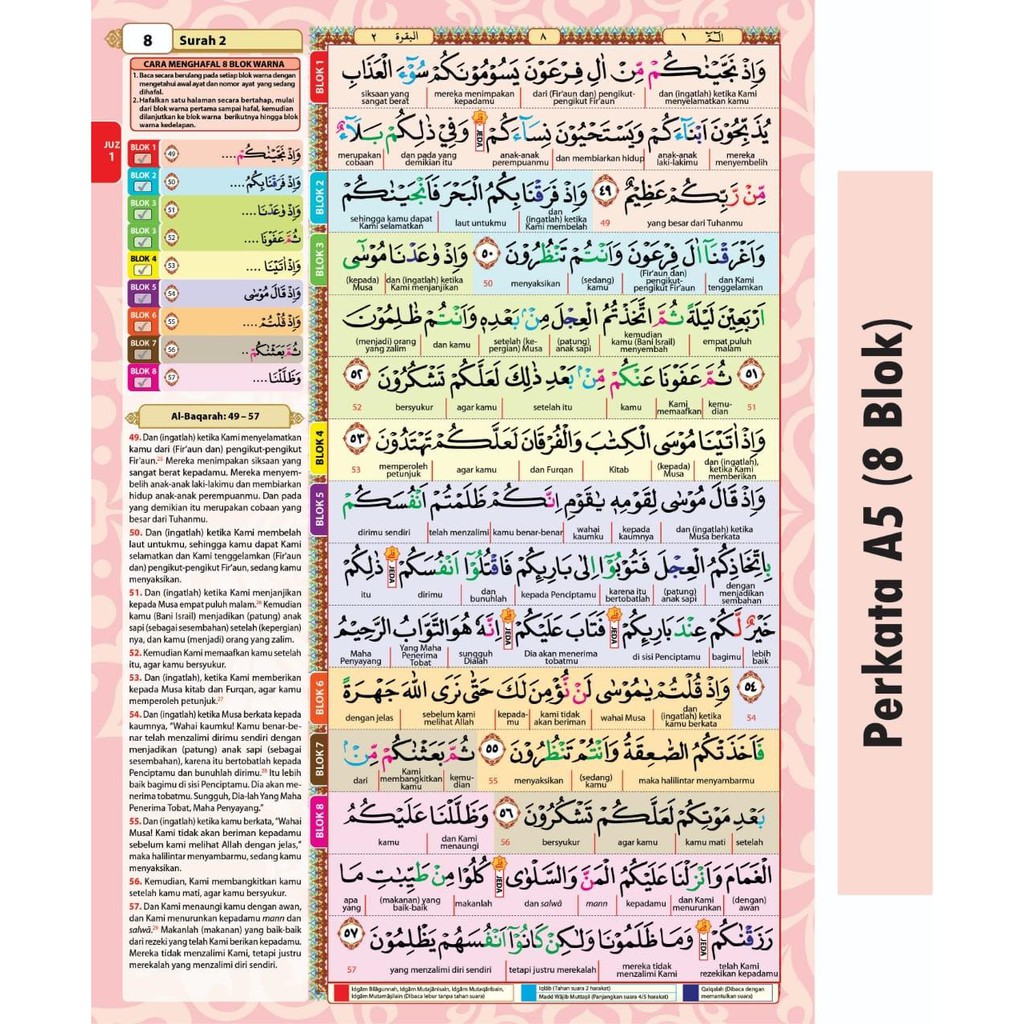 8
Surah 2
البقرة ٢
٨
الٓمّٓ ١
CARA MENGHAFAL 8 BLOK WARNA
1. Baca secara berulang pada setiap blok warna dengan
mengetahui awal ayat dan nomor ayat yang sedang
dihafal.
2. Hafalkan satu halaman secara bertahap, mulai
dari blok warna pertama sampai hafal, kemudian
dilanjutkan ke blok warna berikutnya hingga blok
warna kedelapan.
JUZ
1
BLOK 1 49 وَاِذْ نَجَّيْنٰكُمْ....
BLOK 2 50 وَاِذْ فَرَقْنَا بِكُمُ....
BLOK 3 51 وَاِذْ وٰعَدْنَا....
BLOK 3 52 ثُمَّ عَفَوْنَا....
BLOK 4 53 وَاِذْ اٰتَيْنَا ....
BLOK 5 54 وَاِذْ قَالَ مُوْسٰى
BLOK 6 55 وَاِذْ قُلْتُمْ....
BLOK 7 56 ثُمَّ بَعَثْنٰكُمْ..
BLOK 8 57 وَظَلَّلْنَا....
Al-Baqarah: 49 – 57
49. Dan (ingatlah) ketika Kami menyelamatkan
kamu dari (Fir'aun dan) pengikut-pengikut
Fir'aun. Mereka menimpakan siksaan yang
sangat berat kepadamu. Mereka menyem-
belih anak-anak laki-lakimu dan membiarkan
hidup anak-anak perempuanmu. Dan pada
yang demikian itu merupakan cobaan yang
besar dari Tuhanmu.
50. Dan (ingatlah) ketika Kami membelah
laut untukmu, sehingga kamu dapat Kami
selamatkan dan Kami tenggelamkan (Fir'aun
dan) pengikut-pengikut Fir'aun, sedang kamu
menyaksikan.
51. Dan (ingatlah) ketika Kami menjanjikan
kepada Musa empat puluh malam. Kemudian
kamu (Bani Israil) menjadikan (patung) anak
sapi (sebagai sesembahan) setelah (kepergian)
nya, dan kamu (menjadi) orang yang zalim.
52. Kemudian Kami memaafkan kamu setelah
itu, agar kamu bersyukur.
53. Dan (ingatlah), ketika Kami memberikan
kepada Musa kitab dan Furqan, agar kamu
memperoleh petunjuk.
54. Dan (ingatlah) ketika Musa berkata kepada
kaumnya, "Wahai kaumku! Kamu benar-be-
nar telah menzalimi dirimu sendiri dengan
menjadikan (patung) anak sapi (sebagai
sesembahan), karena itu bertobatlah kepada
Penciptamu dan bunuhlah dirimu. Itu lebih
baik bagimu di sisi Penciptamu. Dia akan me-
nerima tobatmu. Sungguh, Dia-lah Yang Maha
Penerima Tobat, Maha Penyayang."
55. Dan (ingatlah) ketika kamu berkata, "Wahai
Musa! Kami tidak akan beriman kepadamu
sebelum kami melihat Allah dengan jelas,"
maka halilintar menyambarmu, sedang kamu
menyaksikan.
56. Kemudian, Kami membangkitkan kamu
setelah kamu mati, agar kamu bersyukur.
57. Dan Kami menaungi kamu dengan awan,
dan Kami menurunkan kepadamu mann dan
salwā. Makanlah (makanan) yang baik-baik
dari rezeki yang telah Kami berikan kepadamu.
Mereka tidak menzalimi Kami, tetapi justru
merekalah yang menzalimi diri sendiri.
BLOK 1
وَاِذْ نَجَّيْنٰكُمْ مِّنْ اٰلِ فِرْعَوْنَ يَسُوْمُوْنَكُمْ سُوْۤءَ الْعَذَابِ
dan (ingatlah) ketika Kami menyelamatkan kamu | dari (Fir'aun dan) pengikut-pengikut Fir'aun | mereka menimpakan kepadamu | siksaan yang sangat berat
يُذَبِّحُوْنَ اَبْنَاۤءَكُمْ وَيَسْتَحْيُوْنَ نِسَاۤءَكُمْ JEDA وَفِيْ ذٰلِكُمْ بَلَاۤءٌ
mereka menyembelih | anak-anak laki-lakimu | dan membiarkan hidup | anak-anak perempuanmu | dan pada yang demikian itu | merupakan cobaan
BLOK 2
مِّنْ رَّبِّكُمْ عَظِيْمٌ ٤٩ وَاِذْ فَرَقْنَا بِكُمُ الْبَحْرَ فَاَنْجَيْنٰكُمْ
yang besar dari Tuhanmu 49 | dan (ingatlah) ketika Kami membelah | laut untukmu | sehingga kamu dapat Kami selamatkan
BLOK 3
وَاَغْرَقْنَآ اٰلَ فِرْعَوْنَ وَاَنْتُمْ تَنْظُرُوْنَ ٥٠ وَاِذْ وٰعَدْنَا مُوْسٰٓى
dan Kami tenggelamkan | (Fir'aun dan) pengikut-pengikut Fir'aun | (sedang) kamu | menyaksikan 50 | dan (ingatlah) ketika Kami menjanjikan | (kepada) Musa
اَرْبَعِيْنَ لَيْلَةً ثُمَّ اتَّخَذْتُمُ الْعِجْلَ مِنْۢ بَعْدِهٖ وَاَنْتُمْ ظٰلِمُوْنَ
empat puluh malam | kemudian kamu (Bani Israil) menyembah | (patung) anak sapi | setelah (ke-pergian) Musa | dan kamu | (menjadi) orang yang zalim
٥١ ثُمَّ عَفَوْنَا عَنْكُمْ مِّنْۢ بَعْدِ ذٰلِكَ لَعَلَّكُمْ تَشْكُرُوْنَ ٥٢
51 kemu-dian | Kami memaafkan | kamu | setelah itu | agar kamu | bersyukur 52
BLOK 4
وَاِذْ اٰتَيْنَا مُوْسَى الْكِتٰبَ وَالْفُرْقَانَ لَعَلَّكُمْ تَهْتَدُوْنَ ٥٣
dan (ingatlah), ketika Kami memberikan | (kepada) Musa | Kitab | dan Furqan | agar kamu | memperoleh petunjuk 53
BLOK 5
وَاِذْ قَالَ مُوْسٰى لِقَوْمِهٖ يٰقَوْمِ اِنَّكُمْ ظَلَمْتُمْ اَنْفُسَكُمْ
dan (ingatlah) ketika Musa berkata | kepada kaumnya | wahai kaumku | kamu benar-benar | telah menzalimi | dirimu sendiri
بِاتِّخَاذِكُمُ الْعِجْلَ فَتُوْبُوْٓا اِلٰى بَارِىِٕكُمْ فَاقْتُلُوْٓا اَنْفُسَكُمْ JEDA ذٰلِكُمْ
dengan menjadikan sembahan | (patung) anak sapi | karena itu bertobatlah | kepada Penciptamu | dan bunuhlah | dirimu | itu
خَيْرٌ لَّكُمْ عِنْدَ بَارِىِٕكُمْ JEDA فَتَابَ عَلَيْكُمْ JEDA اِنَّهٗ هُوَ التَّوَّابُ الرَّحِيْمُ
lebih baik | bagimu | di sisi Penciptamu | Dia akan menerima tobatmu | sungguh Dialah | Yang Maha Penerima Tobat | Maha Penyayang
BLOK 6
٥٤ وَاِذْ قُلْتُمْ يٰمُوْسٰى لَنْ نُّؤْمِنَ لَكَ حَتّٰى نَرَى اللّٰهَ جَهْرَةً
54 dan (ingatlah) ketika kamu berkata | wahai Musa | kami tidak akan beriman | kepada-mu | sebelum kami melihat Allah | dengan jelas
BLOK 7
فَاَخَذَتْكُمُ الصّٰعِقَةُ وَاَنْتُمْ تَنْظُرُوْنَ ٥٥ ثُمَّ بَعَثْنٰكُمْ مِّنْۢ
maka halilintar menyambarmu | (sedang) kamu | menyaksikan 55 | kemu-dian | Kami membangkitkan kamu | dari
BLOK 8
بَعْدِ مَوْتِكُمْ لَعَلَّكُمْ تَشْكُرُوْنَ ٥٦ وَظَلَّلْنَا عَلَيْكُمُ
setelah | kamu mati | agar kamu | bersyukur 56 | dan Kami menaungi | kamu
الْغَمَامَ وَاَنْزَلْنَا عَلَيْكُمُ الْمَنَّ وَالسَّلْوٰى JEDA كُلُوْا مِنْ طَيِّبٰتِ مَا
(dengan) awan | dan Kami menurunkan | kepadamu | mann | dan salwā | makanlah | (makanan) yang baik-baik | apa yang
رَزَقْنٰكُمْ JEDA وَمَا ظَلَمُوْنَا وَلٰكِنْ كَانُوْٓا اَنْفُسَهُمْ يَظْلِمُوْنَ ٥٧
telah Kami rezekikan kepadamu | mereka tidak menzalimi Kami | tetapi justru merekalah | yang menzalimi diri sendiri 57
Idgām Bilāgunnah, Idgām Mutajānisain, Idgām Mutaqāribain,
Idgām Mutamāṡilain (Dibaca lebur tanpa tahan suara)
Iqlāb (Tahan suara 2 harakat)
Madd Wājib Muttaṣil (Panjangkan suara 4/5 harakat)
Qalqalah (Dibaca dengan
memantulkan suara)
Perkata A5 (8 Blok)